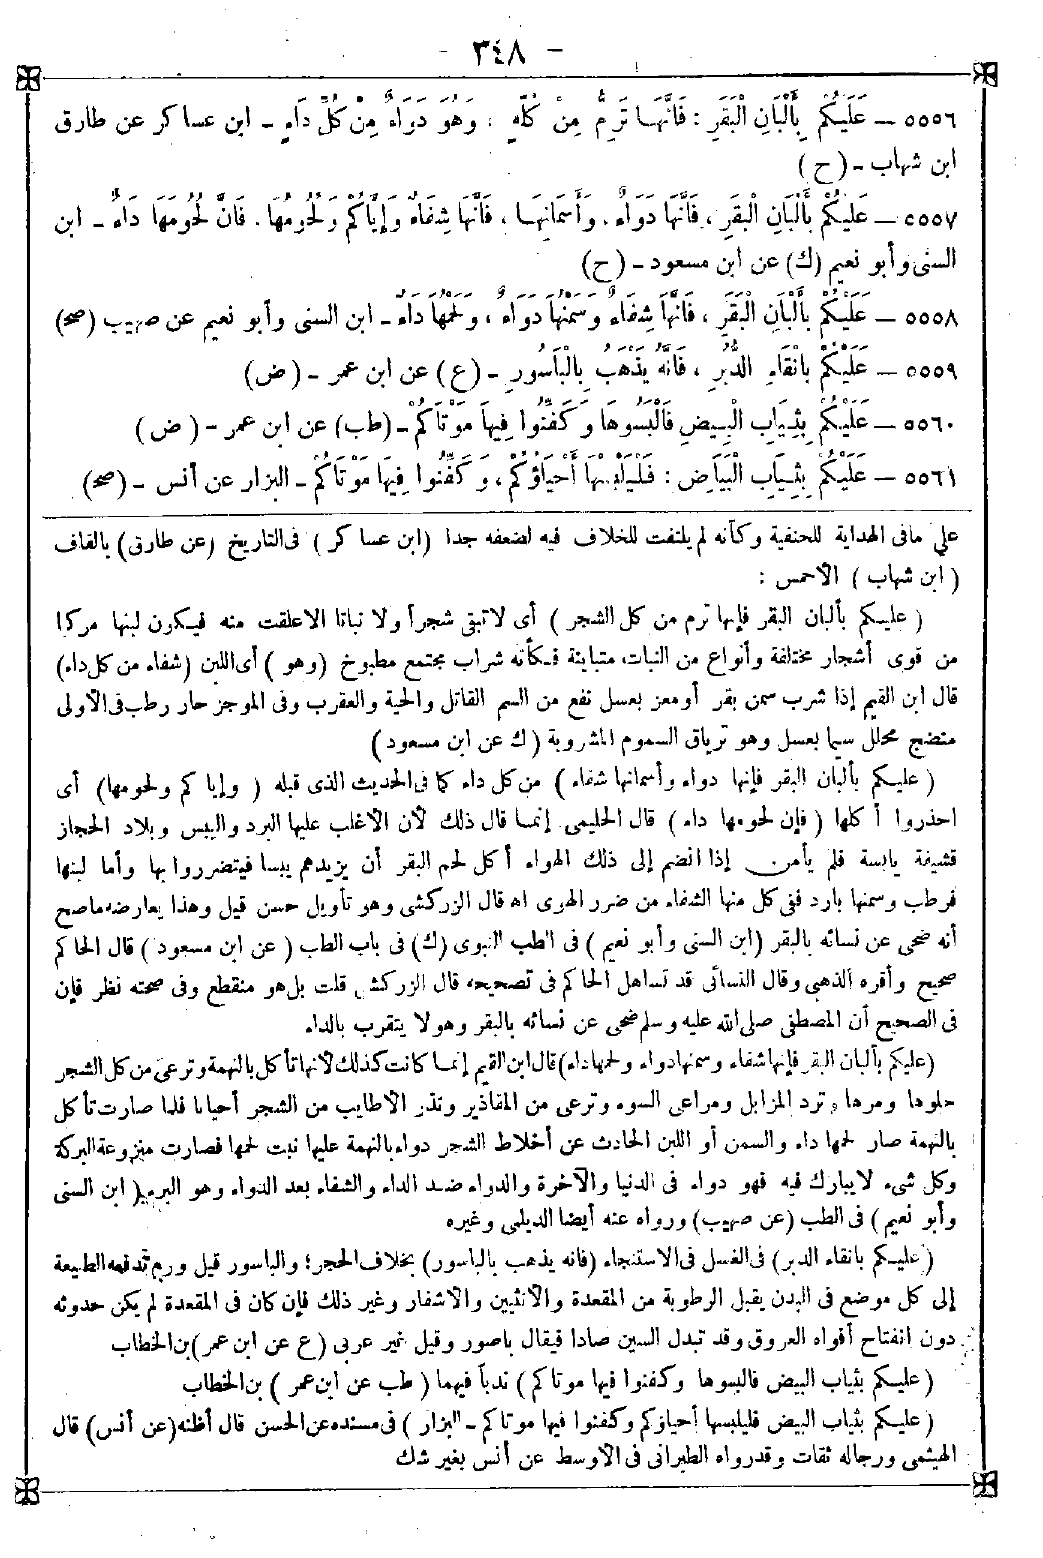 - ٣٤٨ -
٥٥٥٦ — عَلَيْكُمْ بِأَلْبَانِ الْبَقَرِ : فَانَّهَا تَرَمُّ مِنْ كُلِّهِ ، وَهُوَ دَوَاءٌ مِنْ كُلِّ دَاءٍ ــ ابن عساكر عن طارق
ابن شهاب ــ (ح)
٥٥٥٧ — عَلَيْكُمْ بِأَلْبَانِ الْبَقَرِ ، فَانَّهَا دَوَاءٌ . وَأَسْمَانِهَا ، فَانَّهَا شِفَاءٌ وَإِيَّاكُمْ وَلُحُومَهَا . فَانَّ لُحُومَهَا دَاءٌ ــ ابن
السنى وأبو نعيم (ك) عن ابن مسعود ــ (ح)
٥٥٥٨ — عَلَيْكُمْ بِأَلْبَانِ الْبَقَرِ ، فَانَّهَا شِفَاءٌ وَسَمْنُهَا دَوَاءٌ ، وَلَحْمُهَا دَاءٌ ــ ابن السنى وأبو نعيم عن صهيب (صح)
٥٥٥٩ — عَلَيْكُمْ بِانْقَاءِ الدُّبُرِ ، فَانَّهُ يَذْهَبُ بِالْبَاسُورِ ــ (ع) عن ابن عمر ــ (ض)
٥٥٦٠ — عَلَيْكُمْ بِثِيَابِ الْبِيضِ فَالْبَسُوهَا وَكَفِّنُوا فِيهَا مَوْتَاكُمْ ــ (طب) عن ابن عمر ــ (ض)
٥٥٦١ — عَلَيْكُمْ بِثِيَابِ الْبَيَاضِ : فَلْيَلْبَسْهَا أَحْيَاؤُكُمْ ، وَكَفِّنُوا فِيهَا مَوْتَاكُمْ ــ البزار عن أنس ــ (صح)
على مافى الهداية للحنفية وكأنه لم يلتفت للخلاف فيه لضعفه جدا (ابن عساكر) فى التاريخ (عن طارق) بالقاف
(ابن شهاب) الأحمس :
(عليكم بألبان البقر فإنها ترم من كل الشجر) أى لاتبقى شجراً ولا نباتا الاعلقت منه فيكون لبنها مركبا
من قوى أشجار مختلفة وأنواع من النبات متباينة فكأنه شراب مجتمع مطبوخ (وهو) أى اللبن (شفاء من كل داء)
قال ابن القيم إذا شرب سمن بقر أومعز بعسل نفع من السم القاتل والحية والعقرب وفى الموجز حار رطب فى الأولى
منضج محلل سيما بعسل وهو ترياق السموم المشروبة (ك عن ابن مسعود)
(عليكم بألبان البقر فإنها دواء وأسمانها شفاء) من كل داء كما فى الحديث الذى قبله (وإياكم ولحومها) أى
احذروا أكلها (فإن لحومها داء) قال الحليمى إنما قال ذلك لأن الأغلب عليها البرد واليبس وبلاد الحجاز
قشيفة يابسة فلم يأمن إذا انضم إلى ذلك الهواء أكل لحم البقر أن يزيدهم يبسا فيتضرروا بها وأما لبنها
فرطب وسمنها بارد ففى كل منها الشفاء من ضرر الهوى اه قال الزركشى وهو تأويل حسن قيل وهذا يعارضه ماصح
أنه ضحى عن نسائه بالبقر (ابن السنى وأبو نعيم) فى الطب النبوى (ك) فى باب الطب (عن ابن مسعود) قال الحاكم
صحيح وأقره الذهبى وقال النسائى قد تساهل الحاكم فى تصحيحه قال الزركشى قلت بل هو منقطع وفى صحته نظر فإن
فى الصحيح أن المصطفى صلى الله عليه وسلم ضحى عن نسائه بالبقر وهو لا يتقرب بالداء
(عليكم بألبان البقر فإنها شفاء وسمنها دواء ولحمها داء) قال ابن القيم إنما كانت كذلك لأنها تأكل بالنهمة وترعى من كل الشجر
حلوها ومرها وترد المزابل ومراعى السوء وترعى من المقاذير وتذر الأطايب من الشجر أحيانا فلما صارت تأكل
بالنهمة صار لحمها داء والسمن أو اللبن الحادث عن أخلاط الشجر دواء بالنهمة عليها نبت لحمها فصارت منزوعة البركة
وكل شىء لايبارك فيه فهو دواء فى الدنيا والآخرة والدواء ضد الداء والشفاء بعد الدواء وهو البرء (ابن السنى
وأبو نعيم) فى الطب (عن صهيب) ورواه عنه أيضا الديلمى وغيره
(عليكم بانقاء الدبر) فى الغسل فى الاستنجاء (فانه يذهب بالباسور) بخلاف الحجر؛ والباسور قيل ورم تدفعه الطبيعة
إلى كل موضع فى البدن يقبل الرطوبة من المقعدة والأنثيين والأشفار وغير ذلك فإن كان فى المقعدة لم يكن حدوثه
دون انفتاح أفواه العروق وقد تبدل السين صادا فيقال باصور وقيل غير عربى (ع عن ابن عمر) بن الخطاب
(عليكم بثياب البيض فالبسوها وكفنوا فيها موتاكم) ندباً فيهما (طب عن ابن عمر) بن الخطاب
(عليكم بثياب البيض فليلبسها أحياؤكم وكفنوا فيها موتاكم ــ البزار) فى مسنده عن الحسن قال أظنه (عن أنس) قال
الهيثمى ورجاله ثقات وقد رواه الطبرانى فى الأوسط عن أنس بغير شك